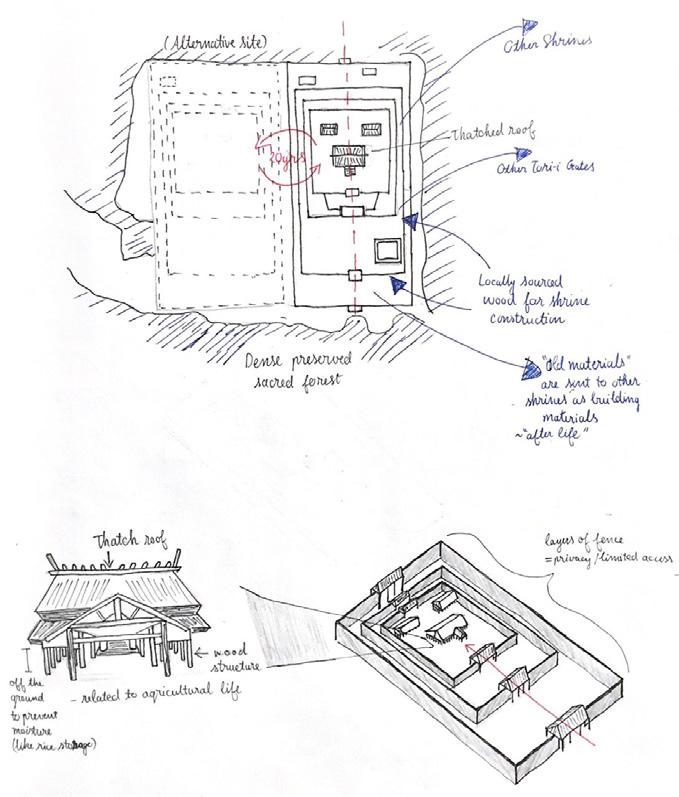 (Alternative site)
Other Shrines
Thatched roof
20yrs
Other Tori-i Gates
Locally sourced
wood for shrine
construction
Dense preserved
sacred forest
"Old materials"
are sent to other
shrines as building
materials
~"after life"
Thatch roof
layers of fence
= privacy/limited access
← wood
structure
off the
ground
to prevent
moisture
(like rice storage)
- related to agricultural life